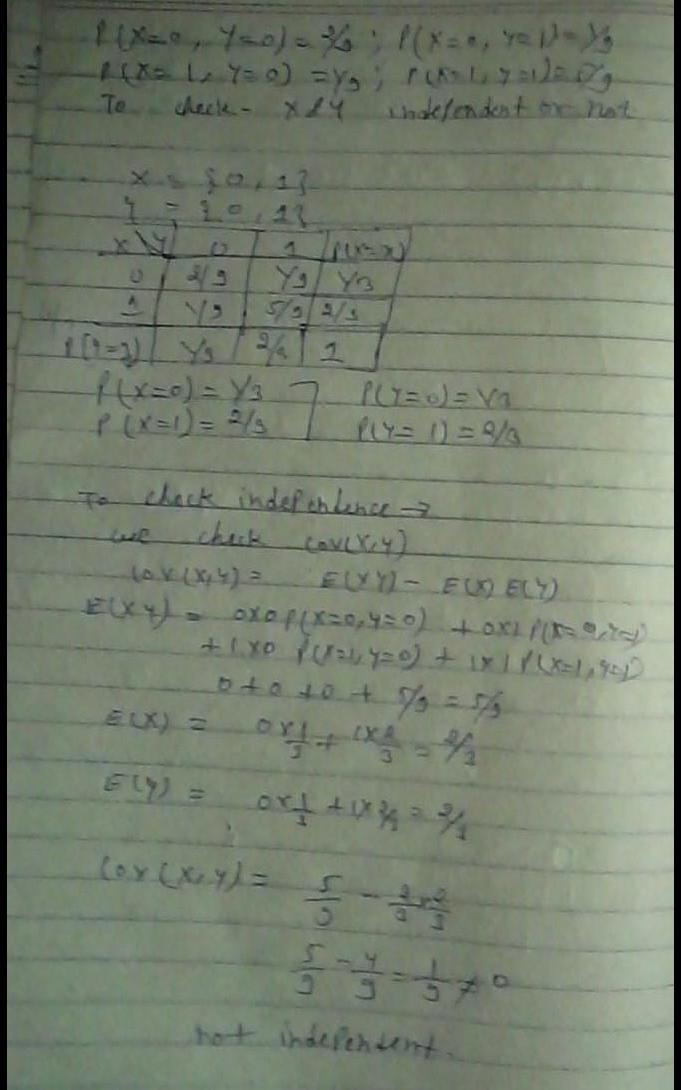 P(X=0, Y=0) = 2/9 ; P(X=0, Y=1) = 1/9
P(X=1, Y=0) = 1/9 ; P(X=1, Y=1) = 5/9
To check - X & Y independent or not
X = {0, 1}
Y = {0, 1}
X\Y 0 1 P(X=x)
0 2/9 1/9 1/3
1 1/9 5/9 2/3
P(Y=y) 1/3 2/3 1
P(X=0) = 1/3 P(Y=0) = 1/3
P(X=1) = 2/3 P(Y=1) = 2/3
To check independence →
we check Cov(X,Y)
Cov(X,Y) = E(XY) - E(X) E(Y)
E(XY) = 0x0 P(X=0,Y=0) + 0x1 P(X=0,Y=1)
+ 1x0 P(X=1,Y=0) + 1x1 P(X=1,Y=1)
0 + 0 + 0 + 5/9 = 5/9
E(X) = 0x1/3 + 1x2/3 = 2/3
E(Y) = 0x1/3 + 1x2/3 = 2/3
Cov(X,Y) = 5/9 - 2/3 x 2/3
5/9 - 4/9 = 1/9 ≠ 0
not independent.